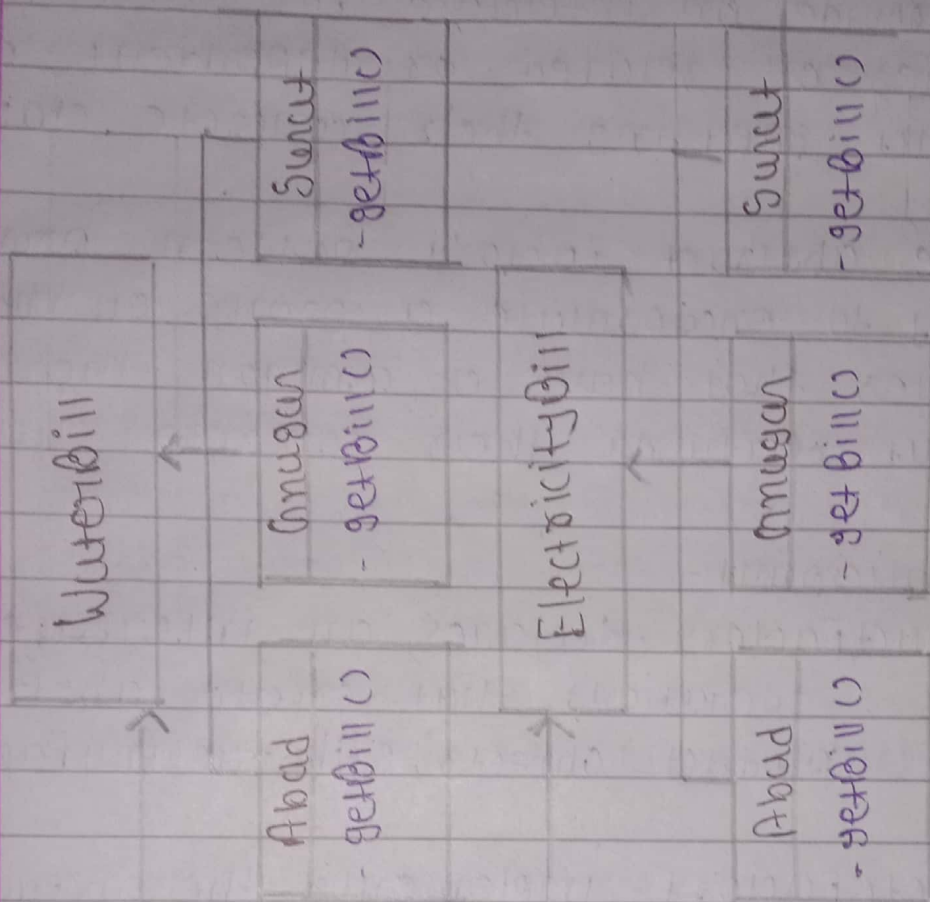 WaterBill
Abad
- getBill()
Anugar
- getBill()
Surat
- getBill()
ElectricityBill
Abad
- getBill()
Anugar
- getBill()
Surat
- getBill()